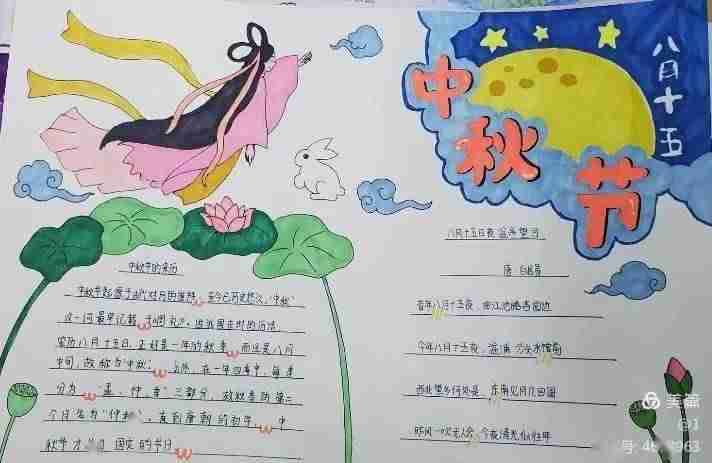 中秋节
八月十五
中秋节的来历
中秋节起源于古代对月的崇拜，至今已历史悠久，"中秋"
这一词最早记载《周礼》，
农历八月十五日，正好是一年的秋季，而且是八月
中旬，故称为"中秋"，在一年四季中，每季
分为"孟、仲、季"三部分，故秋季的第二
个月也为"仲秋"，直到唐朝的初年，中
秋节才 固定的节日
八月十五日夜湓亭望月
唐 白居易
昔年八月十五夜，曲江池畔杏园边
今年八月十五夜，湓浦沙头水馆前
西北望乡何处是，东南见月几回圆
昨风一吹无人会，今夜清光似往年
美篇